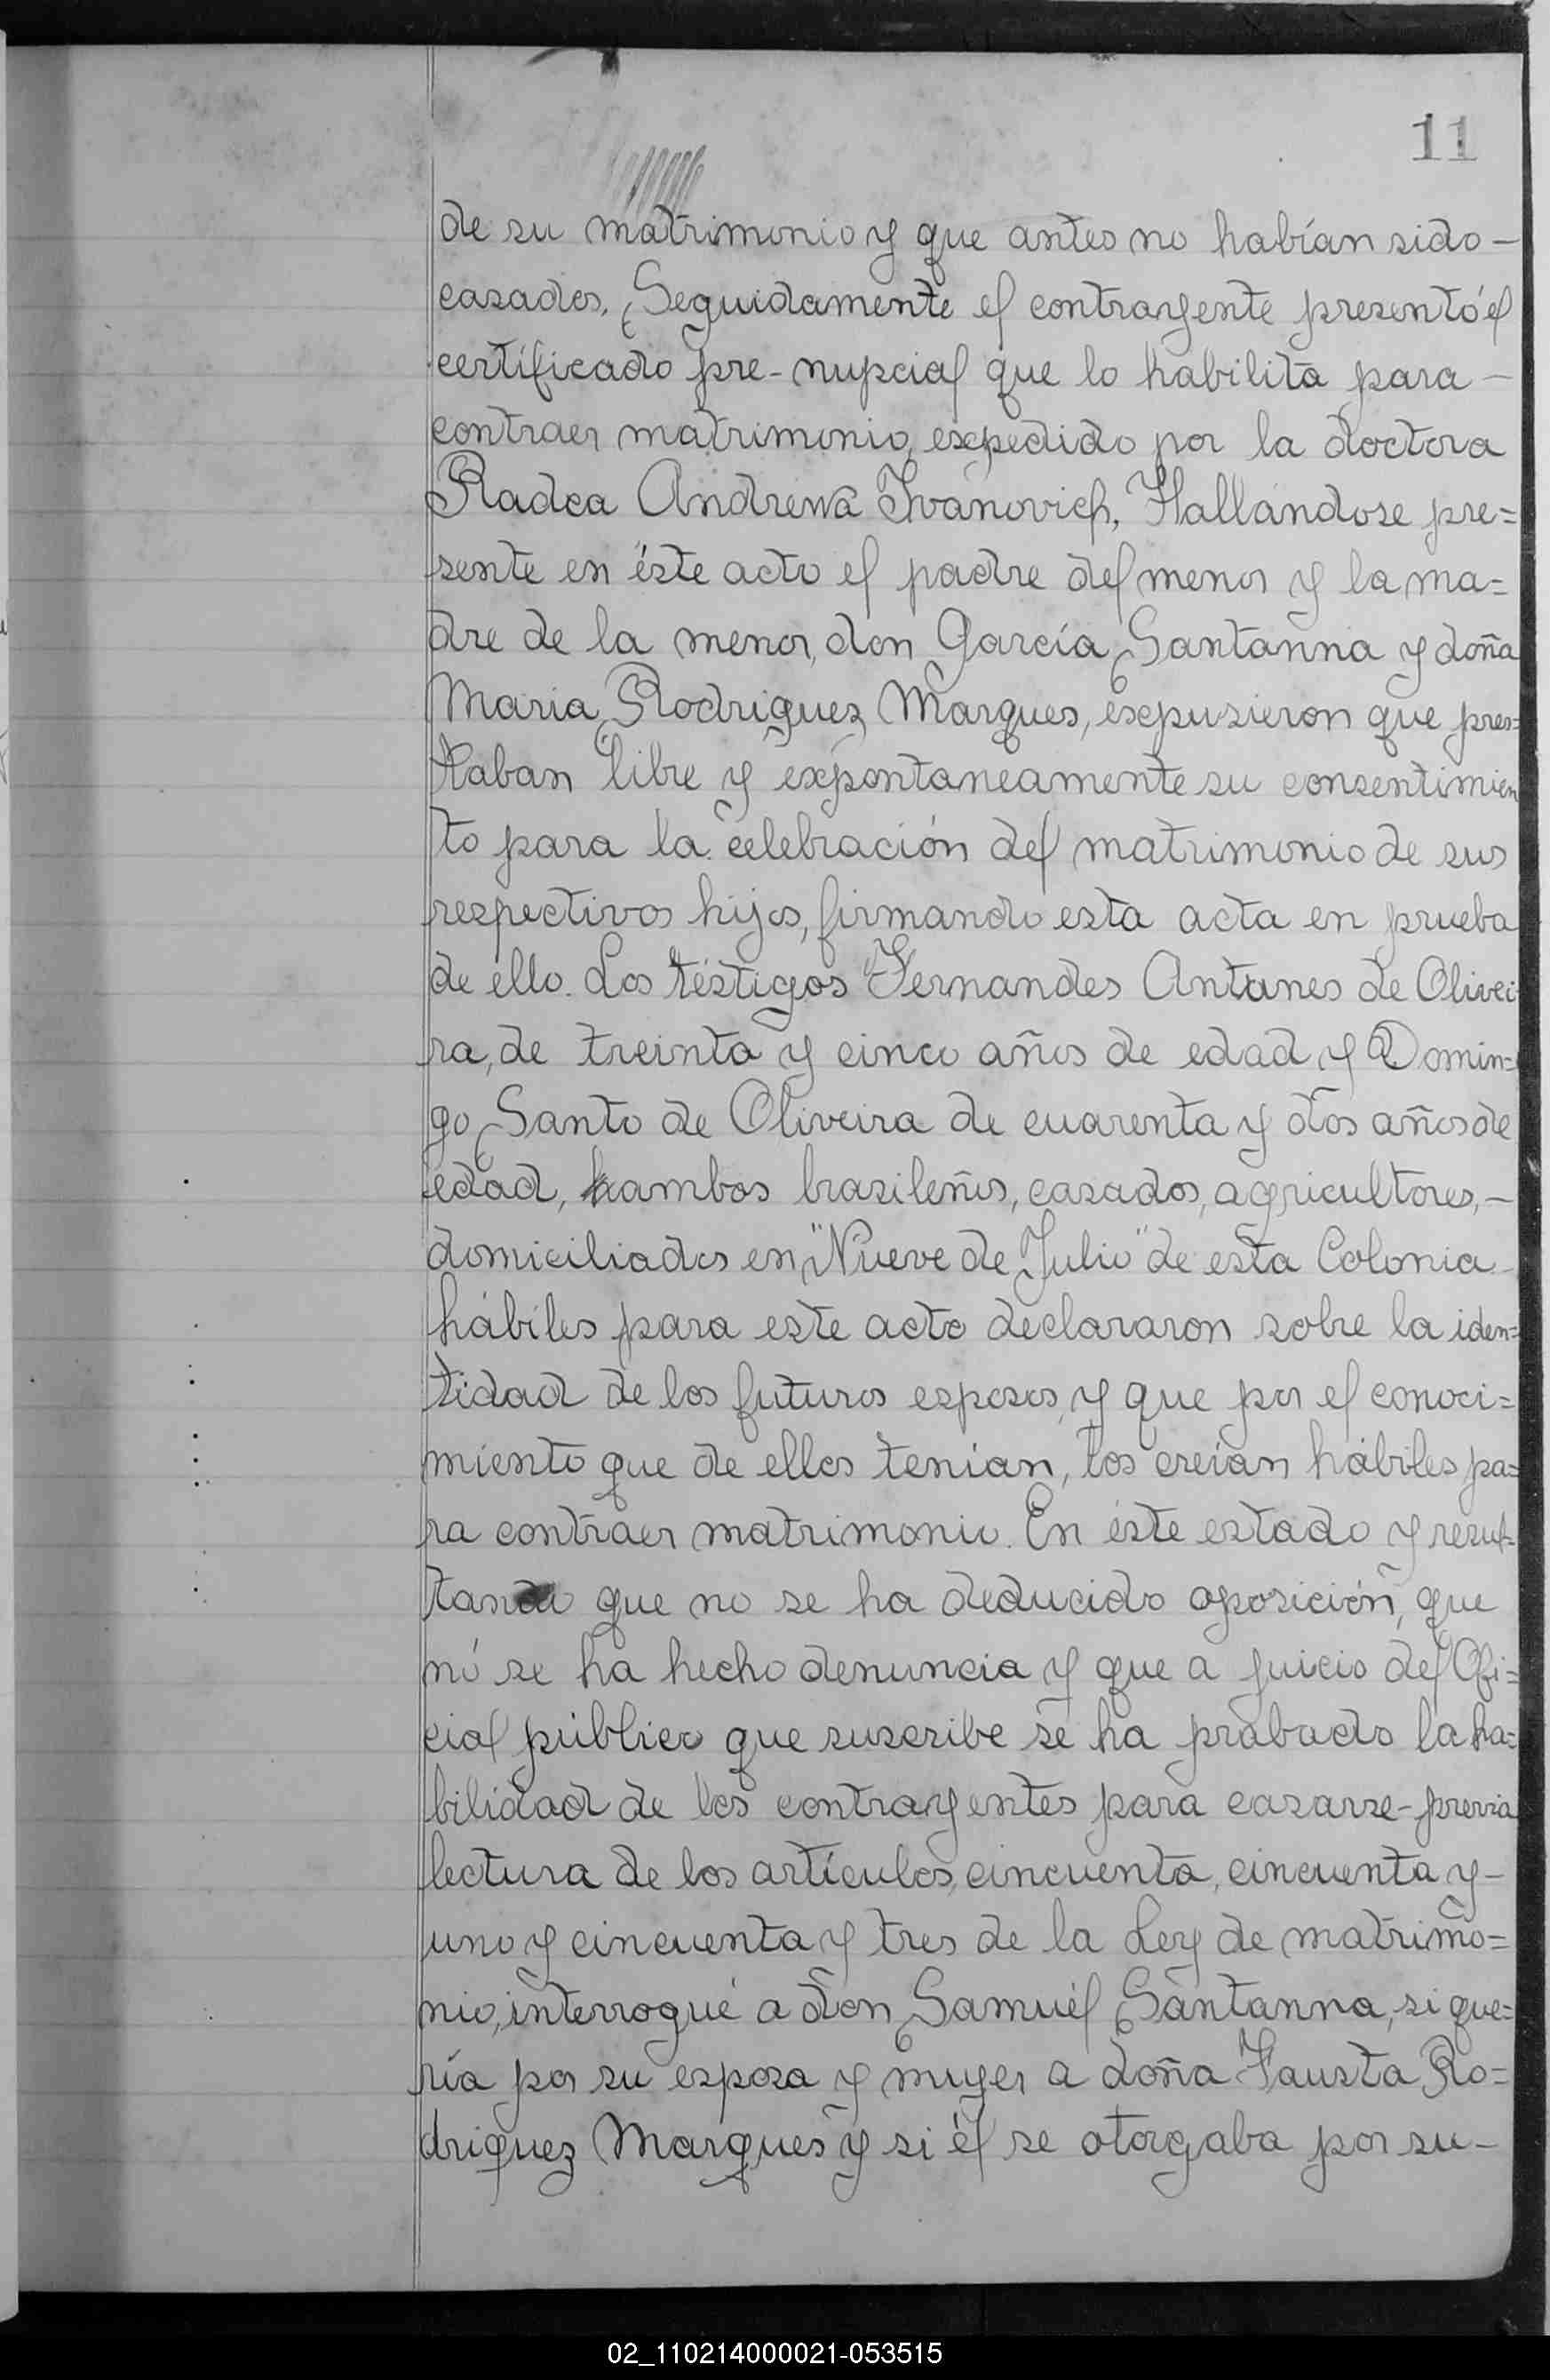 11
de su matrimonio y que antes no habían sido -
casados. Seguidamente el contrayente presentó el
certificado pre-nupcial que lo habilita para -
contraer matrimonio, expedido por la doctora
Radca Andrewa Ivanovich. Hallándose pre=
sente en éste acto el padre del menor y la ma=
dre de la menor, don García Santanna y doña
Maria Rodriguez Marques, expusieron que pres=
taban libre y expontaneamente su consentimien
to para la celebración del matrimonio de sus
respectivos hijos, firmando esta acta en prueba
de ello. Los téstigos Fernandes Antunes de Olivei
ra, de treinta y cinco años de edad y Domin=
go Santo de Oliveira de cuarenta y dos años de
edad, ambos brasileños, casados, agricultores, -
domiciliados en "Nueve de Julio" de esta Colonia -
hábiles para este acto declararon sobre la iden=
tidad de los futuros esposos, y que por el conoci=
miento que de ellos tenían, los creían hábiles pa=
ra contraer matrimonio. En éste estado y resul-
tando que no se ha deducido oposición, que
nó se ha hecho denuncia y que a juicio del Ofi=
cial público que suscribe se ha probado la ha=
bilidad de los contrayentes para casarse - previa
lectura de los artículos, cincuenta, cincuenta y -
uno y cincuenta y tres de la Ley de matrimo=
nio, interrogué a don Samuel Santanna, si que=
ría por su esposa y mujer a doña Fausta Ro=
driquez Marques y si él se otorgaba por su -
02_110214000021-053515